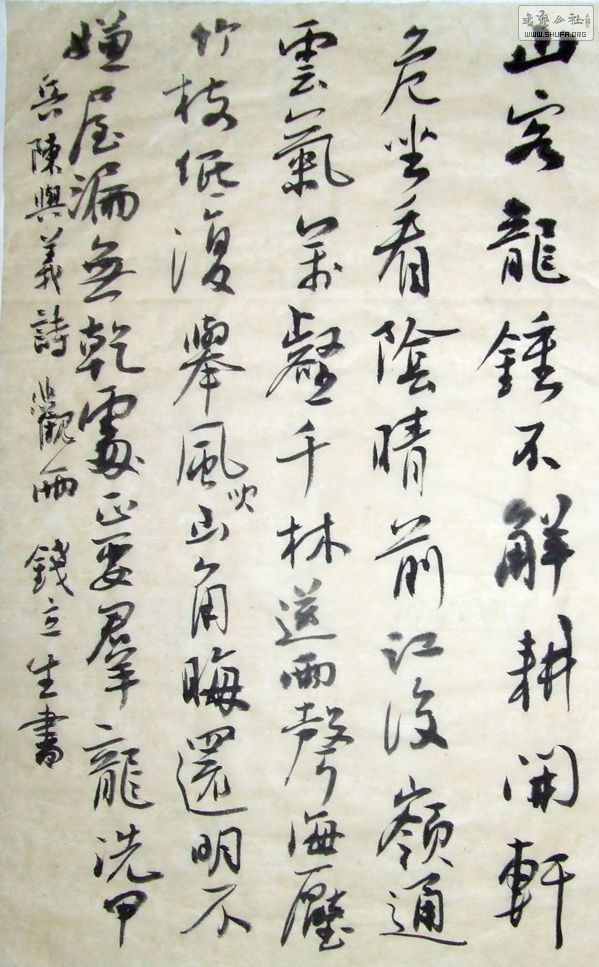 山客龍鍾不解耕開軒
危坐看陰晴前江後嶺通
雲氣萬壑千林送雨聲海壓
竹枝低復舉風山角晦還明不
吹
嫌屋漏無乾處正要羣龍洗甲
兵陳與義詩觀雨 錢立生書
書法公社
WWW.SHUFA.ORG